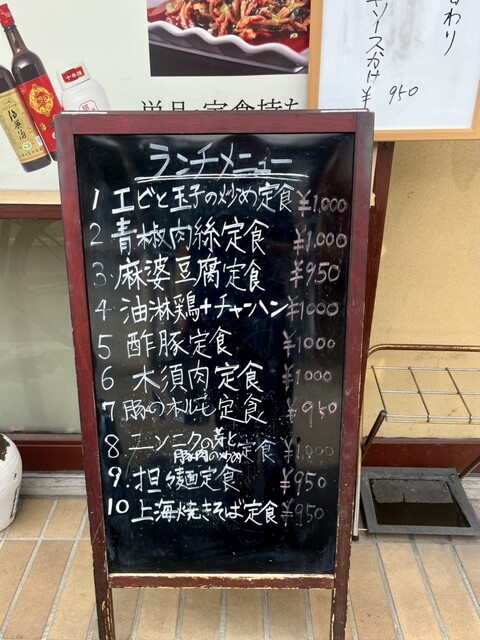 日わり
キソースかけ
¥950
単品・定食持ち
ランチメニュー
1 エビと玉子の炒め定食 ¥1,000
2 青椒肉絲定食 ¥1,000
3 麻婆豆腐定食 ¥950
4 油淋鶏+チャーハン ¥1000
5 酢豚定食 ¥1000
6 木須肉定食 ¥1000
7 豚のホルモン定食 ¥950
8 ニンニクの芽と豚肉の炒め定食 ¥1,000
9 担々麺定食 ¥950
10 上海焼きそば定食 ¥950